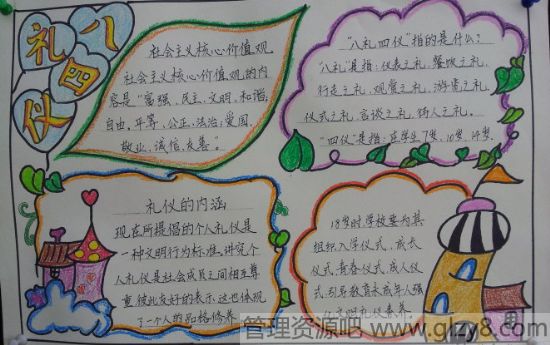 八礼四仪
社会主义核心价值观
社会主义核心价值观的内
容是"富强、民主、文明、和谐,
自由、平等、公正、法治、爱国、
敬业、诚信、友善。"
"八礼四仪"指的是什么?
"八礼"是指:仪表之礼、餐饮之礼、
行走之礼、观赏之礼、游览之礼、
仪式之礼、言谈之礼、待人之礼。
"四仪"是指:在学生7岁、10岁、14岁、
礼仪的内涵
现在所提倡的个人礼仪是
一种文明行为标准。讲究个
人礼仪是社会成员之间相互尊
重,彼此友好的表示,这也体现
了一个人的品格修养
18岁时,学校要为其
组织入学仪式、成长
仪式、青春仪式、成人仪
式,引导教育未成年人强
化文明礼仪素养
管理资源吧 www.glzy8.com